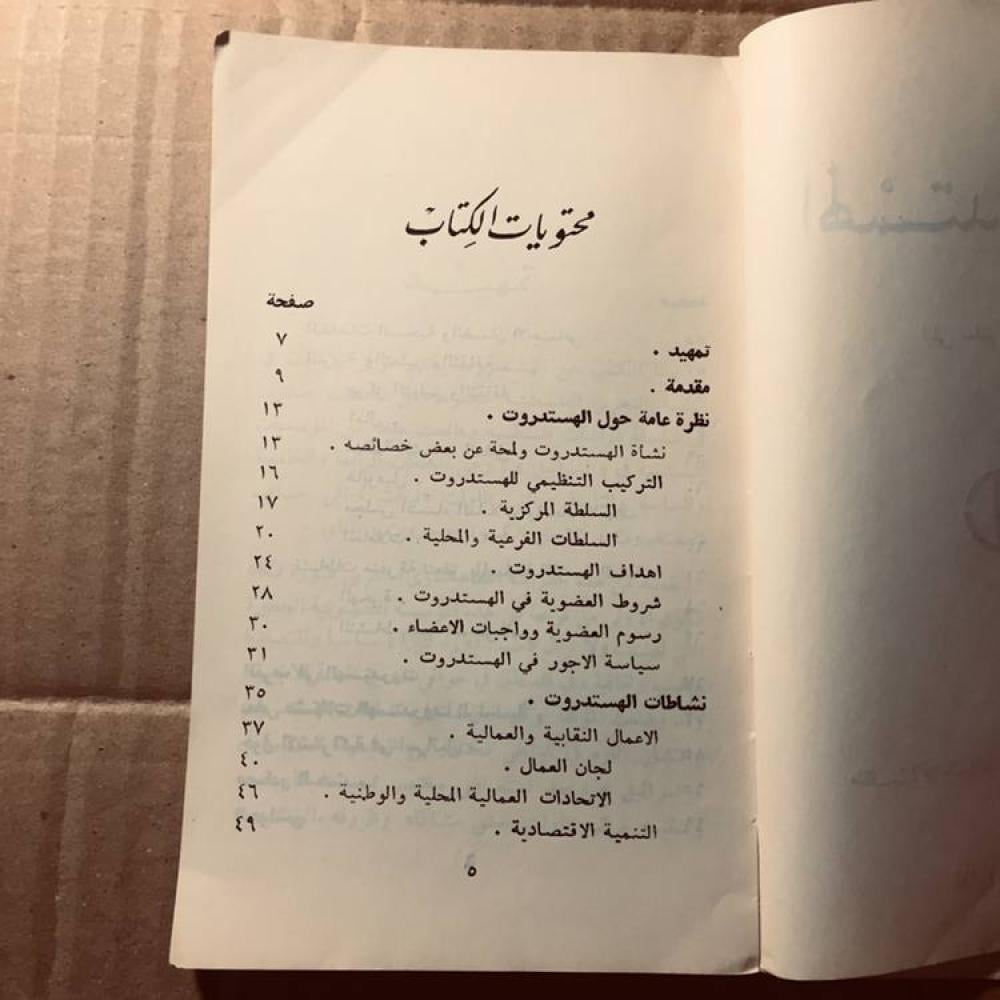 محتويات الكتاب
صفحة
تمهيد . ٧
مقدمة . ٩
نظرة عامة حول الهستدروت . ١٣
نشأة الهستدروت ولمحة عن بعض خصائصه . ١٣
التركيب التنظيمي للهستدروت . ١٦
السلطة المركزية . ١٧
السلطات الفرعية والمحلية . ٢٠
اهداف الهستدروت . ٢٤
شروط العضوية في الهستدروت . ٢٨
رسوم العضوية وواجبات الاعضاء . ٣٠
سياسة الاجور في الهستدروت . ٣١
نشاطات الهستدروت . ٣٥
الاعمال النقابية والعمالية . ٣٧
لجان العمال . ٤٠
الاتحادات العمالية المحلية والوطنية . ٤٦
التنمية الاقتصادية . ٤٩
٥